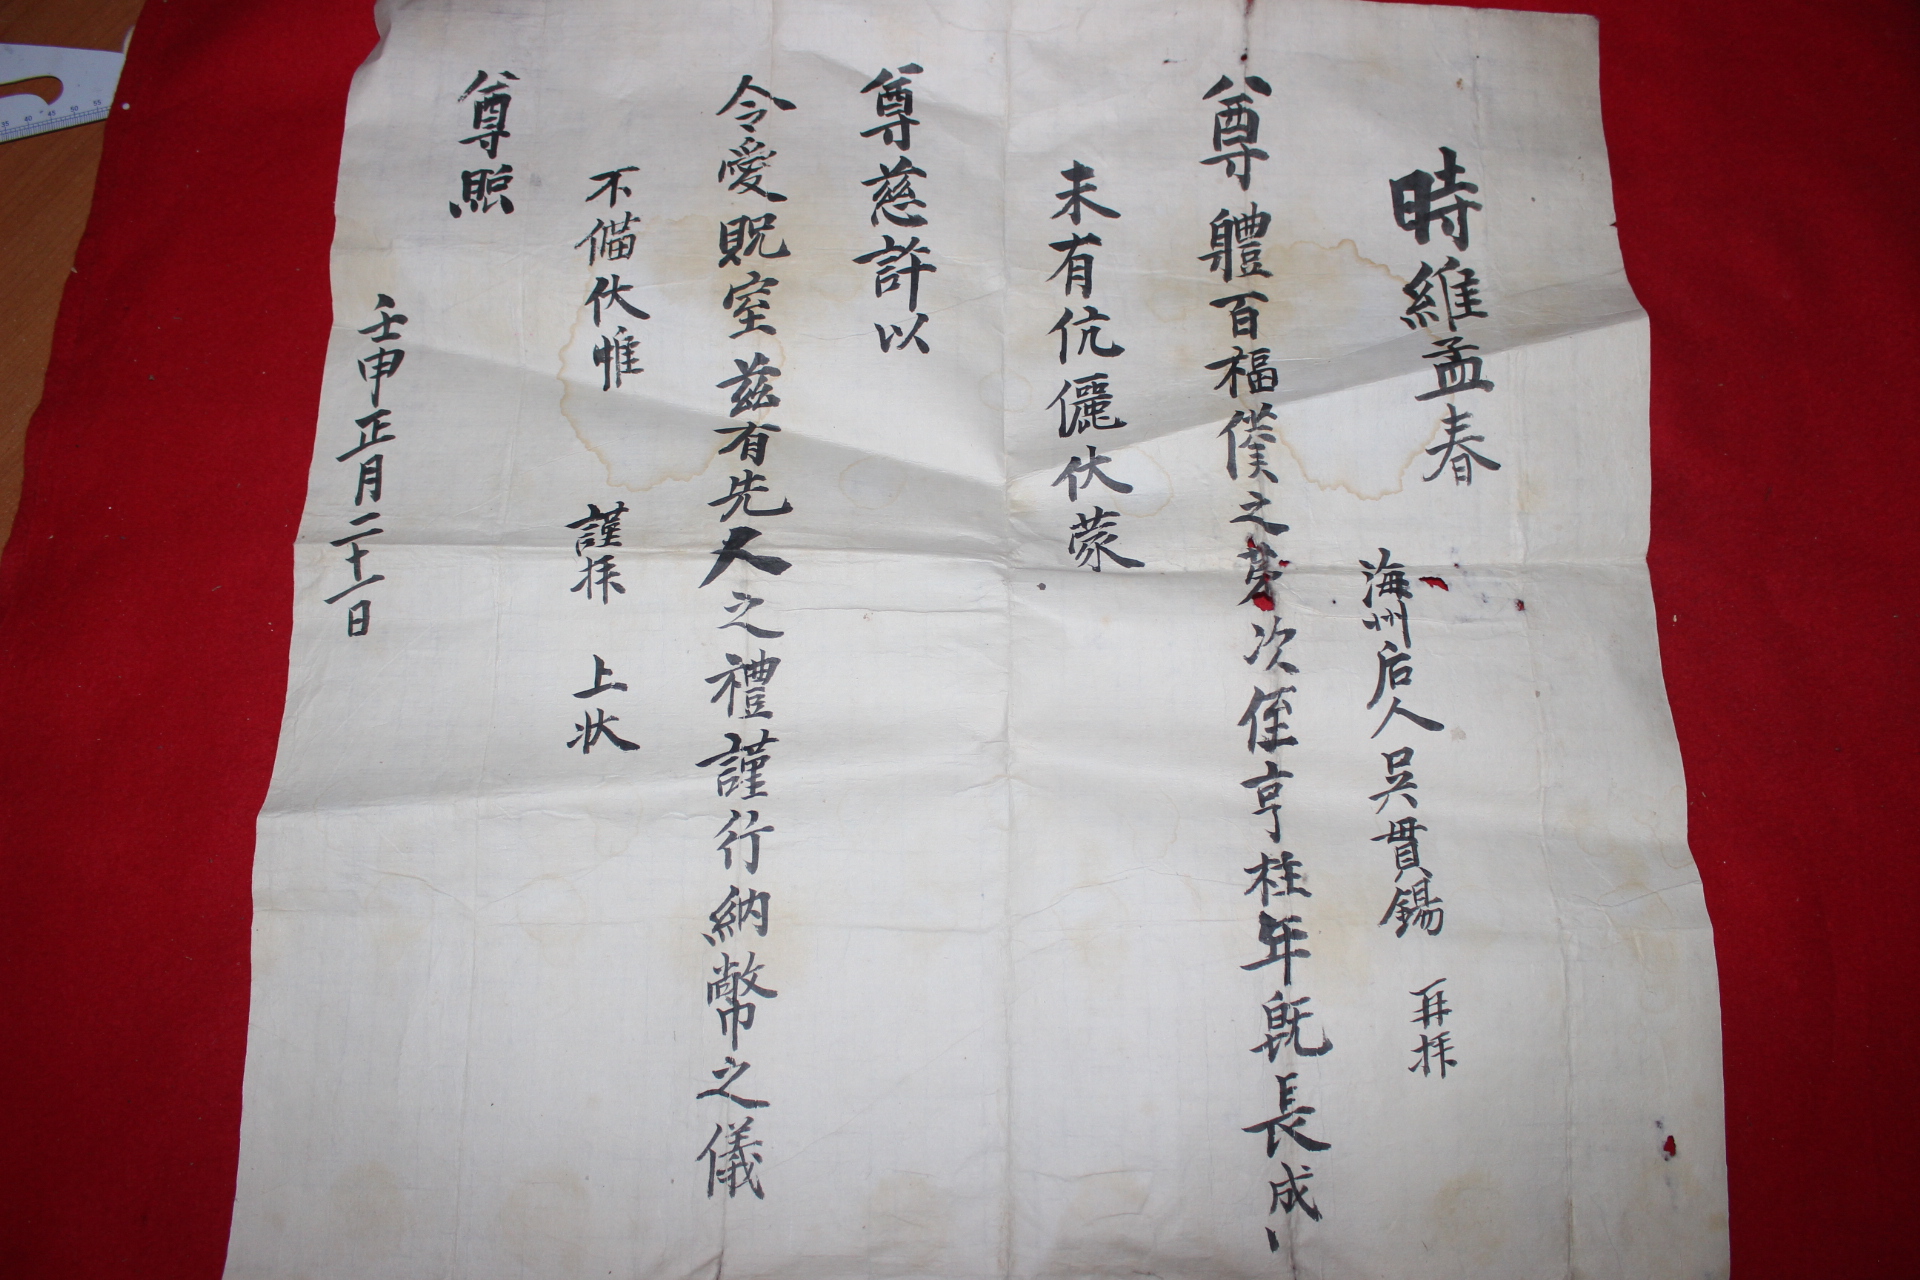 時維孟春
海州后人吳貫錫 再拜
尊體百福僕之第次侄亨柱年既長成
未有伉儷伏蒙
尊慈許以
令愛貺室玆有先人之禮謹行納幣之儀
不備伏惟 謹拜 上狀
尊照
壬申正月二十一日